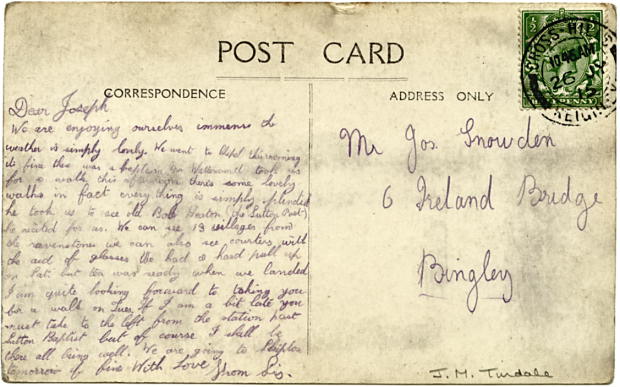 POST CARD
CORRESPONDENCE
ADDRESS ONLY
CROSS-HILLS
10 45 AM
26
12
KEIGHLEY
Dear Joseph
We are enjoying ourselves immensely the
weather is simply lovely. We went to this morning
it fine there was a baptism took us
for a walk this afternoon there's some lovely
walks in fact everything is simply splendid
he took us to see old Bob (the Sutton Poet)
he recited for us. We can see 13 villages from
the ravenstones we can also see courters with
the aid of glasses We had a hard pull up
on Sat. but tea was ready when we landed
I am quite looking forward to taking you
for a walk on Tues. If I am a bit late you
must take to the left from the station past
Sutton Baptist but of course I shall be
there all being well. We are going to Skipton
tomorrow if fine With Love from Sis.
Mr Jos Snowden
6 Ireland Bridge
Bingley
J. M.